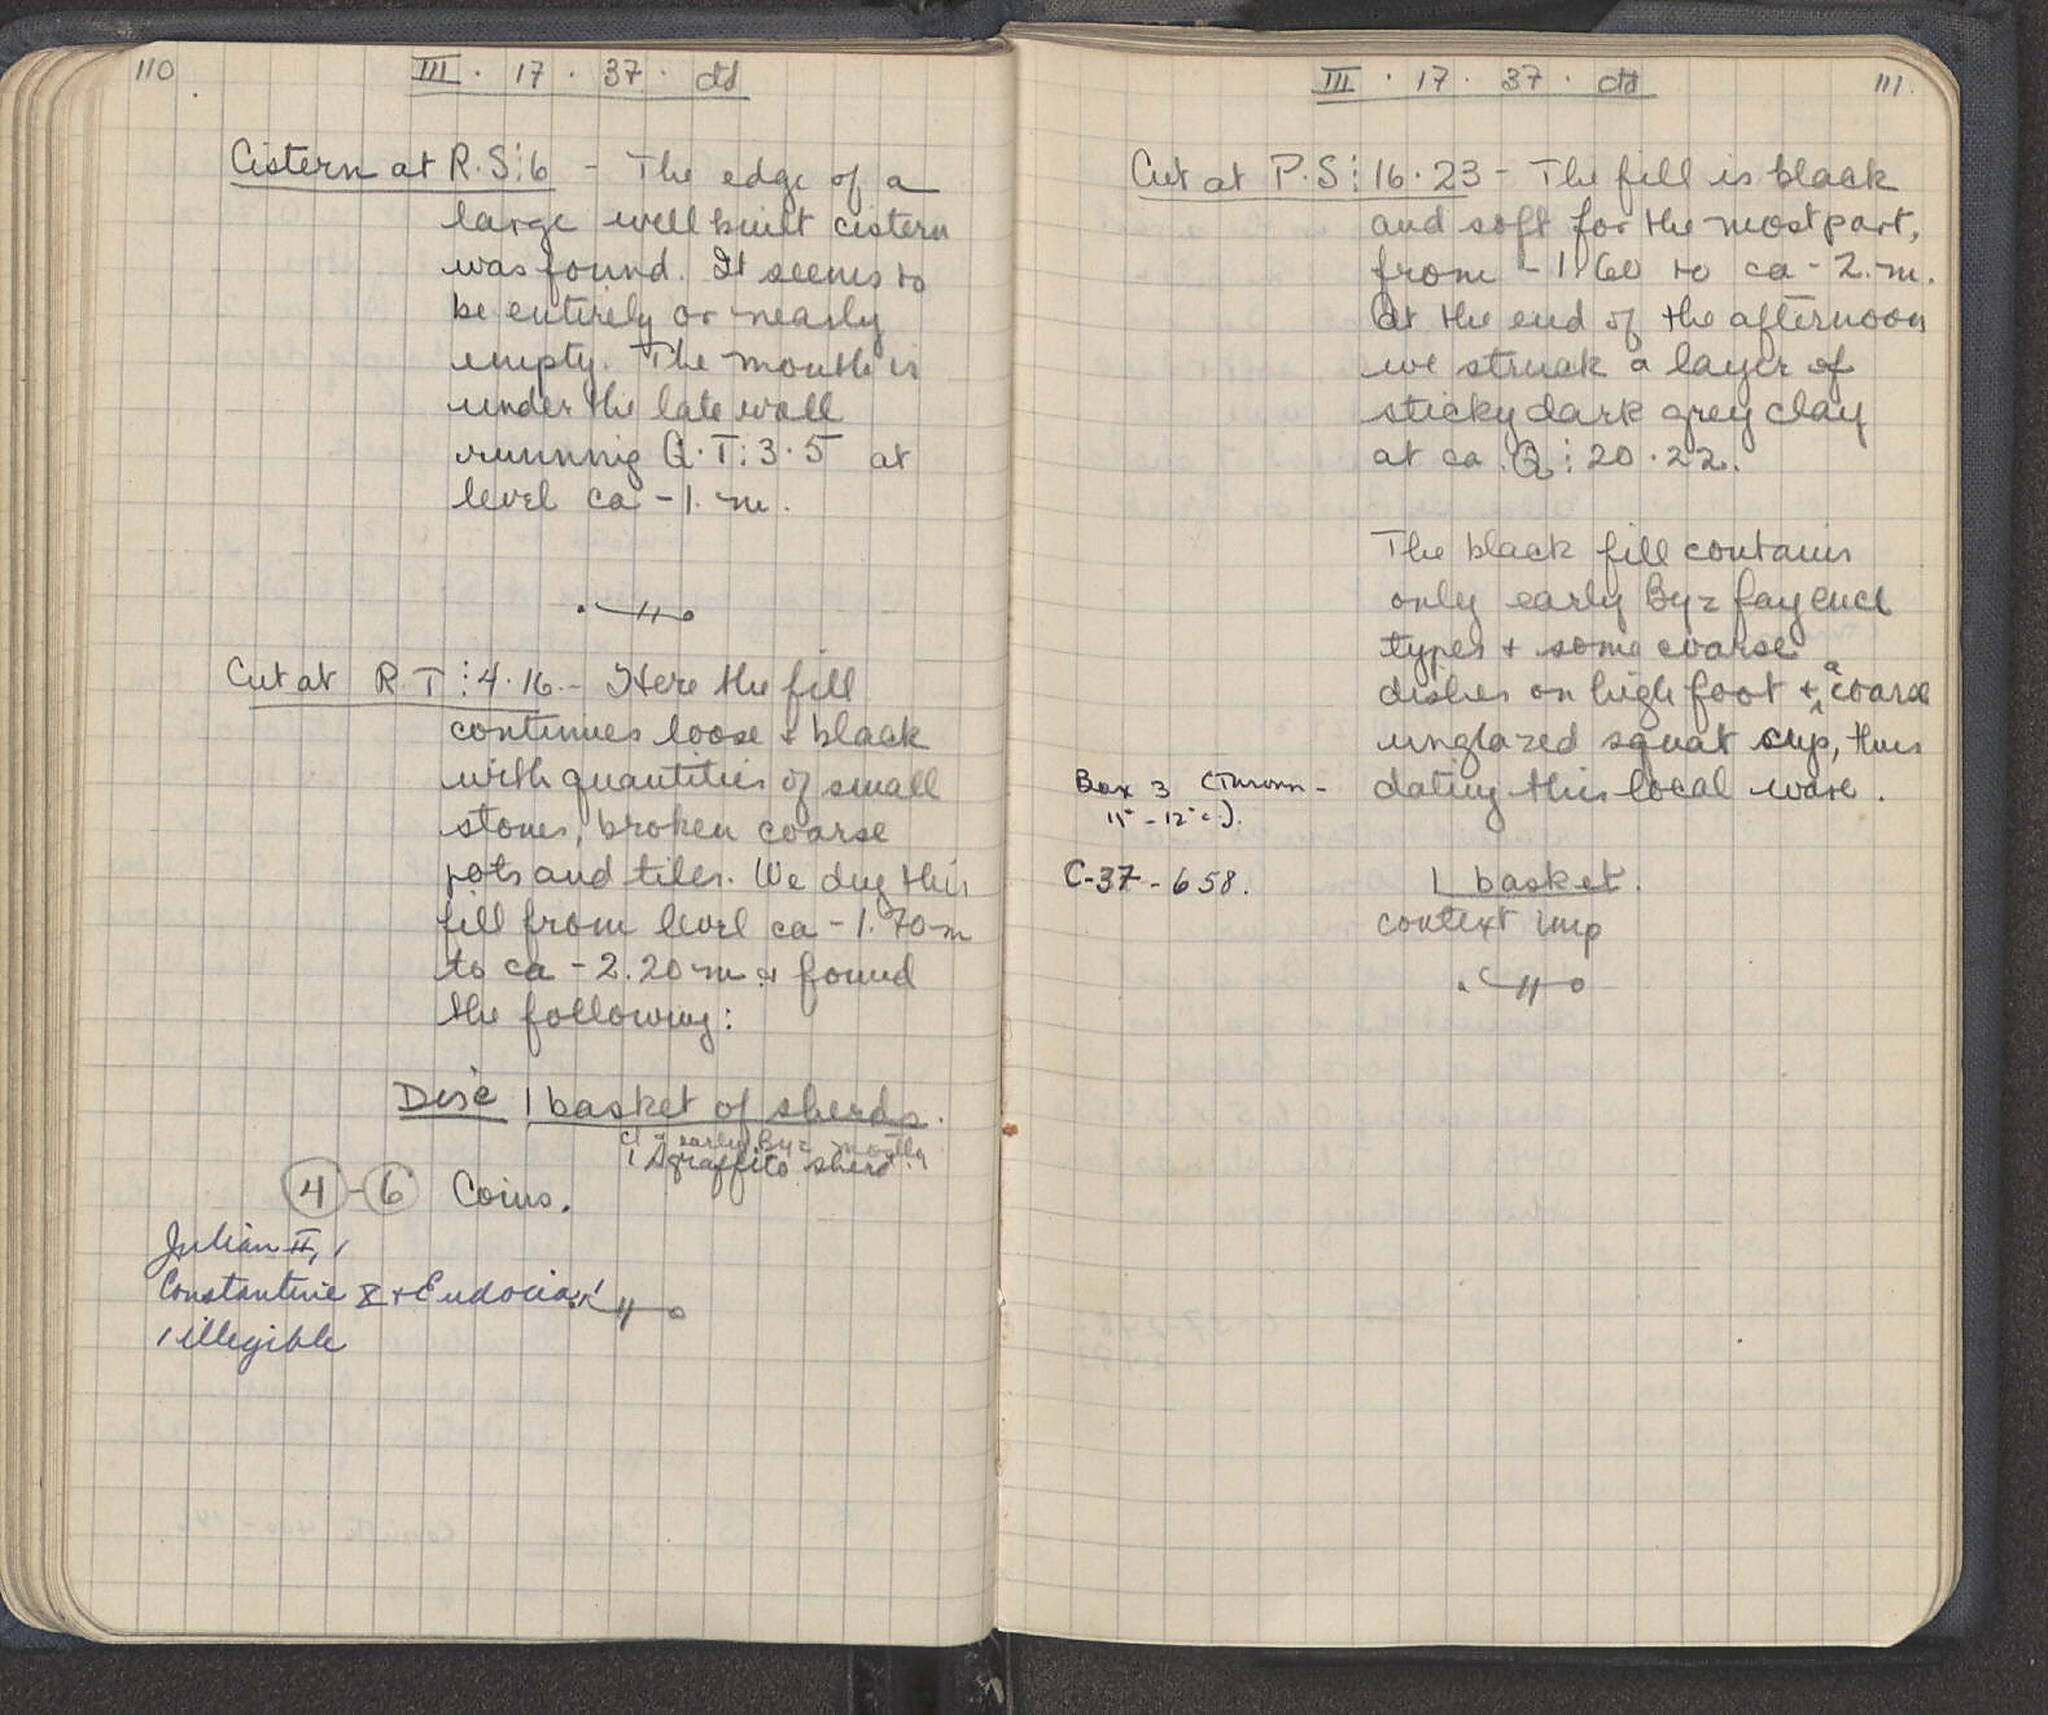 110
III · 17 · 37 · ctd
Cistern at R.S:6 - The edge of a
large well built cistern
was found. It seems to
be entirely or nearly
empty. The mouth is
under the late wall
running Q.T:3.5 at
level ca -1. m.
Cut at R.T:4.16.- Here the fill
continues loose + black
with quantities of small
stones, broken coarse
pots and tiles. We dug this
fill from level ca -1.70 m
to ca -2.20 m & found
the following:
Disc 1 basket of sherds.
early Byz mostly
1 Sgraffito sherd.
4-6 Coins.
Julian II, 1
Constantine X + Eudocia, 1
1 illegible
III · 17 · 37 · ctd
111.
Cut at P.S:16.23 - The fill is black
and soft for the most part,
from -1.60 to ca -2. m.
At the end of the afternoon
we struck a layer of
sticky dark grey clay
at ca Q:20.22.
The black fill contains
only early Byz fayence
types + some coarse
dishes on high foot + a coarse
unglazed squat cup, thus
dating this local ware.
Box 3 (Thrown -
11th - 12th c.).
C-37-658.
1 basket.
context imp